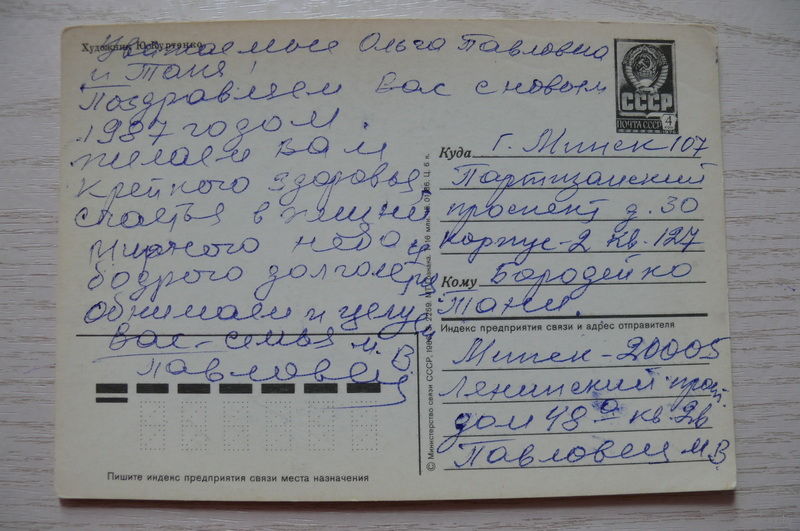 Художник Ю. Куртенко
Уважаемые Ольга Павловна
и Таня!
Поздравляем Вас с новым
1987 годом.
желаем Вам
крепкого здоровья,
счастья в жизни
мирного неба
бодрого долголетия
обнимаем и целуем
Вас - семья м. В
Павловец
СССР
ПОЧТА СССР
4
Куда г. Минск 107
Партизанский
проспект д. 30
корпус-2 кв. 127
Кому Бородейко
Тани.
Индекс предприятия связи и адрес отправителя
Минск - 20005
Лянинский
дом 48а кв. 2в
Павловец М. В.
© Министерство связи СССР, 1986.
Пишите индекс предприятия связи места назначения